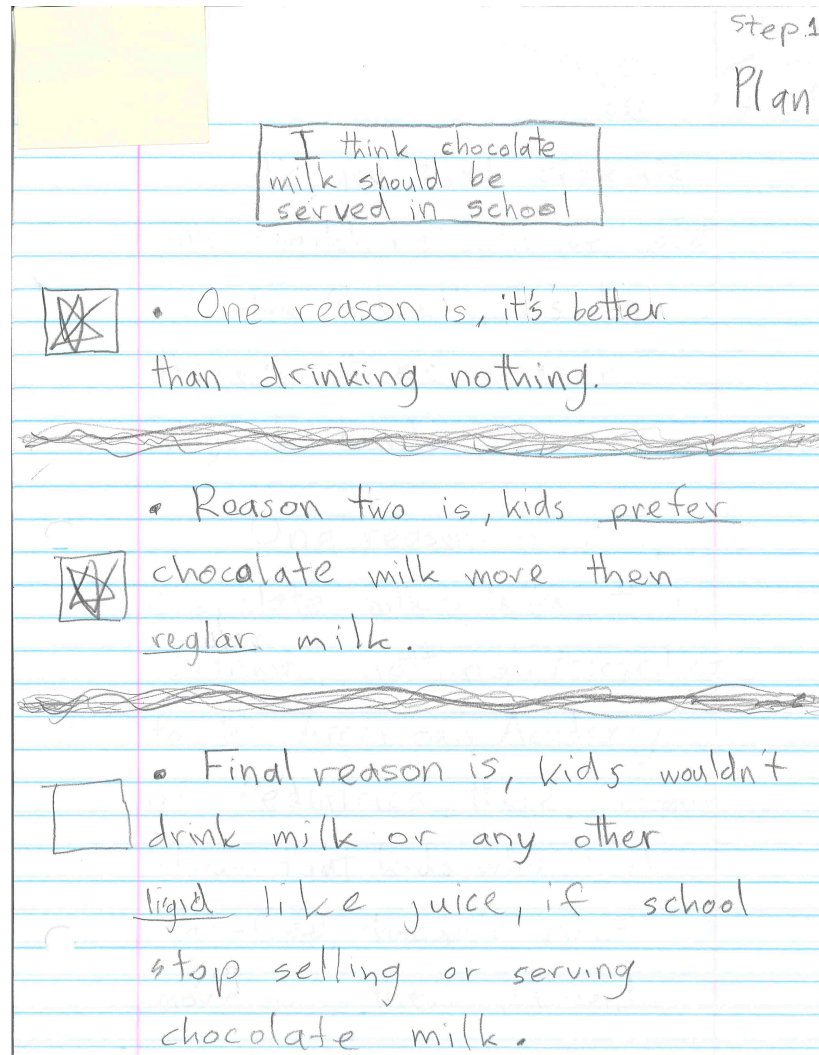 Step.1
Plan
I think chocolate
milk should be
served in school
• One reason is, it's better
than drinking nothing.
• Reason two is, kids prefer
chocalate milk more then
reglar milk.
• Final reason is, kids wouldn't
drink milk or any other
liqid like juice, if school
stop selling or serving
chocolate milk.